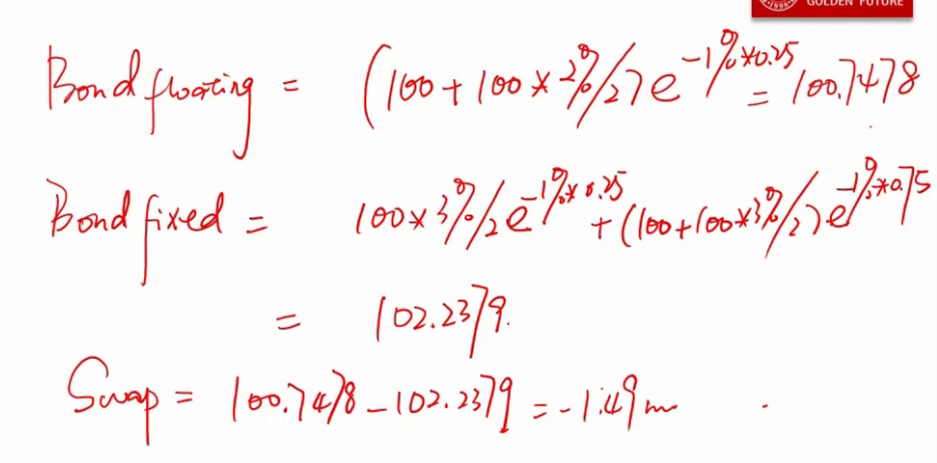 GOLDEN FUTURE
Bond floating = (100 + 100 * 2%/2) e^-1%*0.25 = 100.7478
Bond fixed = 100 * 3%/2 e^-1%*0.25 + (100+100*3%/2) e^-1%*0.75
= 102.2379.
Swap = 100.7478 - 102.2379 = -1.49 m